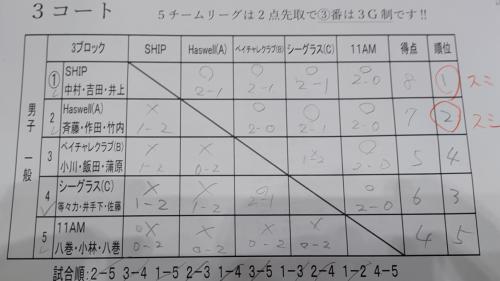 3コート 5チームリーグは2点先取で③番は3G制です!!
3ブロック SHIP Haswell(A) ベイチャレクラブ(B) シーグラス(C) 11AM 得点 順位
男子 一般
① SHIP ○ ○ ○ ○
中村・吉田・井上 2-1 2-1 2-1 2-0 8 ① スミ
2 Haswell(A) × ○ ○ ○
斉藤・作田・竹内 1-2 2-0 2-1 2-0 7 ② スミ
3 ベイチャレクラブ(B) × × × ○
小川・飯田・蒲原 1-2 0-2 1-2 2-0 5 4
4 シーグラス(C) × × ○ ○
等々力・井手下・佐藤 1-2 1-2 2-1 2-0 6 3
5 11AM × × × ×
八巻・小林・八巻 0-2 0-2 0-2 0-2 4 5
試合順:2-5 3-4 1-5 2-3 1-4 3-5 1-3 2-4 1-2 4-5